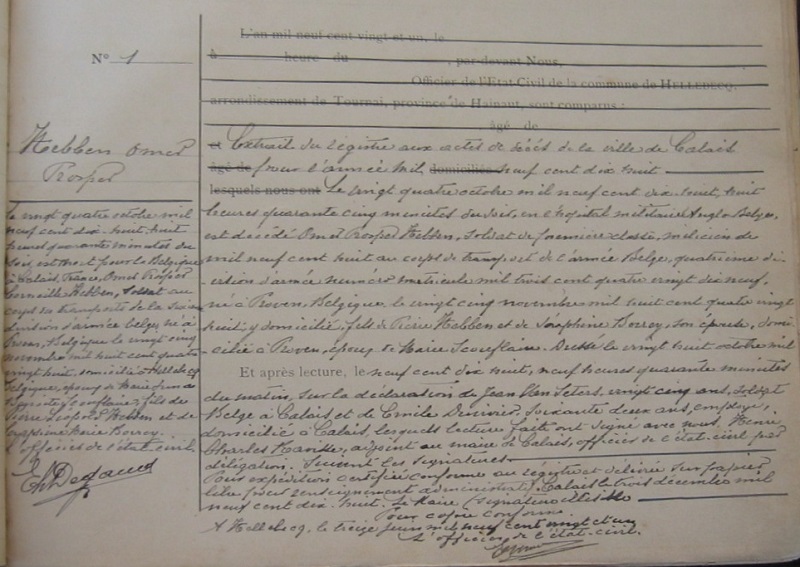 N° 1
Hebben Omer
Prosper
le vingt quatre octobre mil
neuf cent dix-huit, huit
heures quarante minutes du
soir, est mort pour la Belgique
à Calais, France, Omer Prosper
Corneille Hebben, soldat au
corps de transports de la
division d'armée belge, né à
Proven, Belgique le vingt cinq
novembre mil huit cent quatre
vingt huit, domicilié à Hellebecq
Belgique, époux de Marie
fils de
Pierre Hebben et de
Marie Borrey.
L'officier de l'état civil,
L'an mil neuf cent vingt et un, le
à heure du , par-devant Nous,
Officier de l'Etat-Civil de la commune de HELLEBECQ,
arrondissement de Tournai, province de Hainaut, sont comparus :
âgé de
et Extrait du registre aux actes de décès de la ville de Calais
âgé de pour l'année mil, domiciliés neuf cent dix huit
lesquels nous ont Le vingt quatre octobre mil neuf cent dix huit, huit
heures quarante cinq minutes du soir, en l'hopital militaire Anglo Belge,
est décédé Omer Prosper Hebben, soldat de première classe, milicien de
mil neuf cent huit au corps de transport de l'armée Belge, quatrième di-
vision d'armée numéro matricule mil trois cent quatre vingt dix neuf,
né à Proven, Belgique, le vingt cinq novembre mil huit cent quatre vingt
huit, y domicilié, fils de Pierre Hebben et de Joséphine Borrey, son épouse, domi-
ciliés à Proven, époux de Marie Scouflaire. Dressé le vingt huit octobre mil
Et après lecture, le neuf cent dix huit, neuf heures quarante minutes
du matin, sur la déclaration de Jean Van Seters, vingt cinq ans, soldat
Belge à Calais et de Emile Duvivier, soixante deux ans, employé,
domicilié à Calais, lesquels lecture faite ont signé avec nous, Henri
Charles adjoint au maire de Calais, officier de l'état-civil par
délégation. Suivent les signatures
Pour expédition certifiée conforme au registre et délivrée sur papier
libre pour renseignement administratif. Calais le trois décembre mil
neuf cent dix-huit. Le Maire, (signature illisible
Pour copie conforme
A Hellebecq, le treize juin mil neuf cent vingt et un
L'officier de l'état-civil.